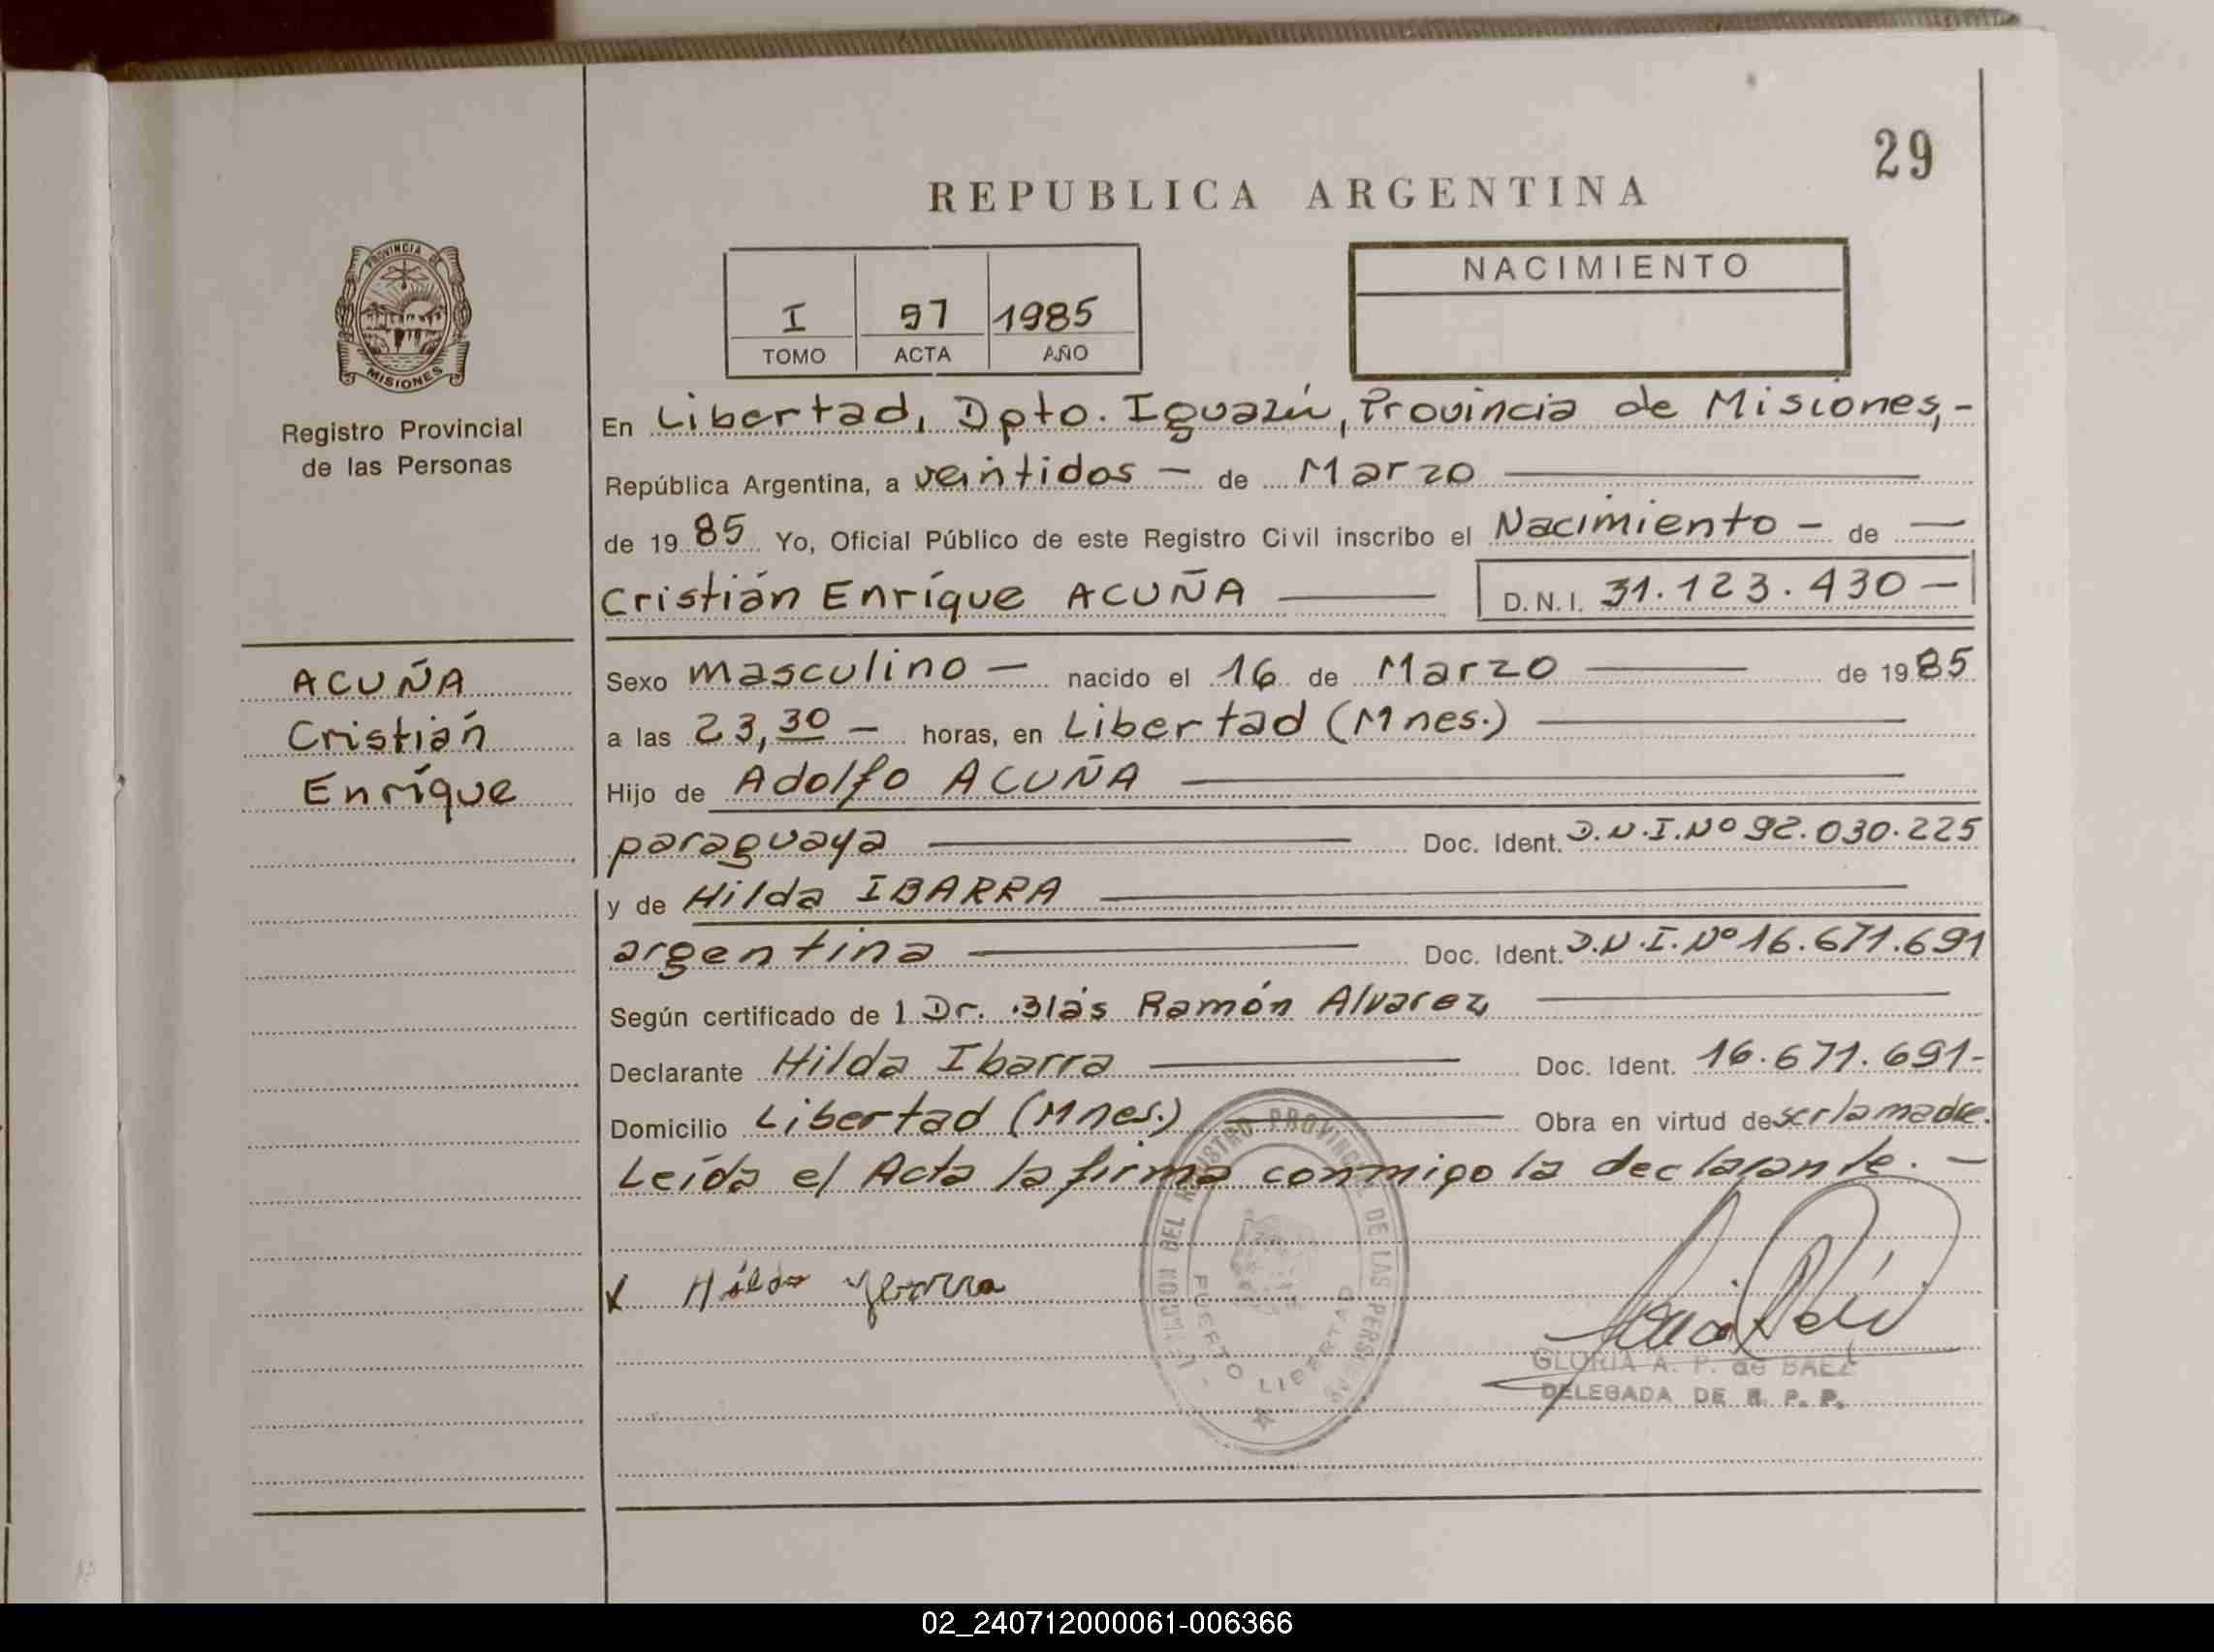 29
REPUBLICA ARGENTINA
PROVINCIA DE
MISIONES
Registro Provincial
de las Personas
I 97 1985
TOMO ACTA AÑO
NACIMIENTO
En Libertad, Dpto. Iguazú, Provincia de Misiones,-
República Argentina, a veintidos - de Marzo
de 1985 Yo, Oficial Público de este Registro Civil inscribo el Nacimiento - de —
Cristián Enríque ACUÑA — D.N.I. 31.123.430 —
ACUÑA
Cristián
Enríque
Sexo masculino — nacido el 16 de Marzo — de 1985
a las 23,30 — horas, en Libertad (Mnes.) —
Hijo de Adolfo ACUÑA —
paraguaya — Doc. Ident. D.N.I.Nº 92.030.225
y de Hilda IBARRA —
argentina — Doc. Ident. D.N.I.Nº 16.671.691
Según certificado de l Dr. Blás Ramón Alvarez —
Declarante Hilda Ibarra — Doc. Ident. 16.671.691-
Domicilio Libertad (Mnes.) — Obra en virtud de ser la madre.
Leída el Acta la firma conmigo la declarante. —
x Hilda Ybarra
DEL REGISTRO PROVINCIAL DE LAS PERSONAS
PUERTO LIBERTAD
GLORIA A. P. de BAEZ
DELEGADA DE R. P. P.
02_240712000061-006366